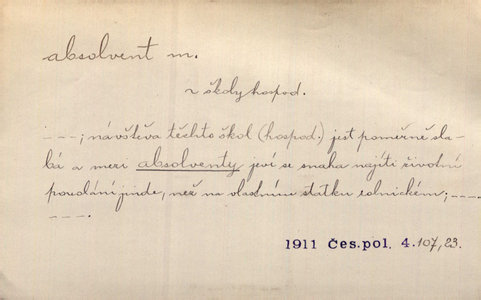 absolvent m.
z školy hospod.
---; návštěva těchto škol (hospod.) jest poměrně sla-
bá a mezi absolventy jeví se snaha najíti životní
povolání jinde, než na vlastním statku rolnickém; ---
---.
1911 Čes.pol. 4. 107, 23.